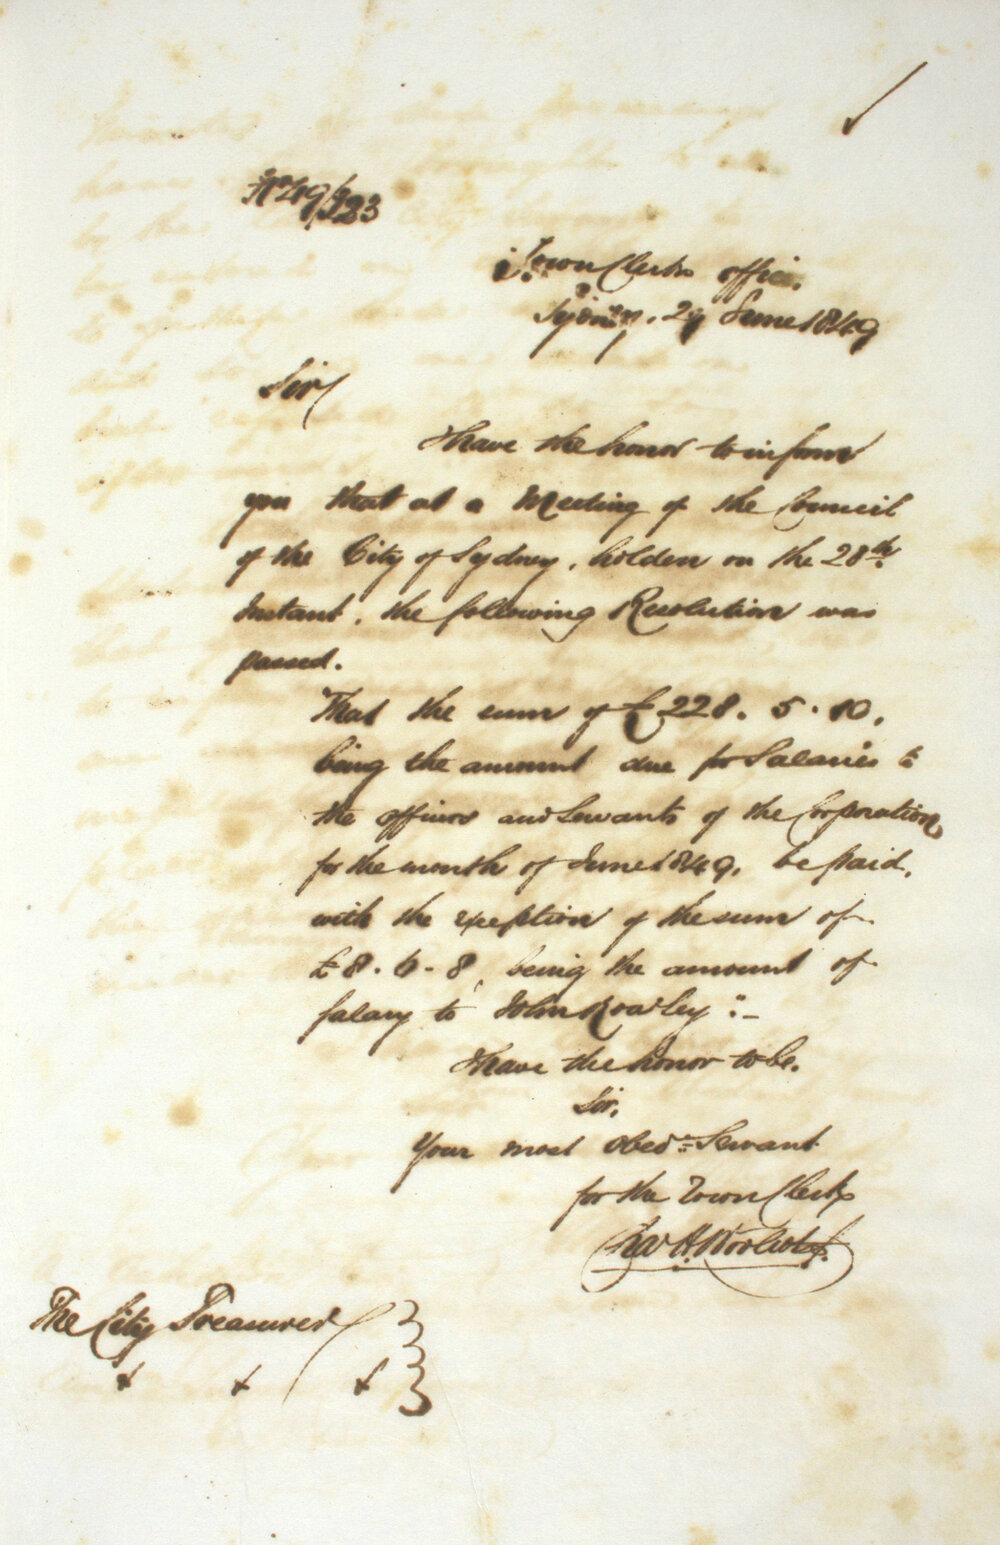 No 49/323
Town Clerks office.
Sydney. 29 June 1849
Sir
I have the honor to inform
you that at a Meeting of the Council
of the City of Sydney, holden on the 28th
Instant, the following Resolution was
passed.
That the sum of £228. 5. 10.
being the amount due for Salaries to
the officers and Servants of the Corporation,
for the month of June 1849, be paid,
with the exception of the sum of
£8. 6. 8, being the amount of
Salary to John Rowley :-
I have the honor to be.
Sir,
Your most obedt Servant
for the Town Clerk
Chas H. Woolcott
The City Treasurer